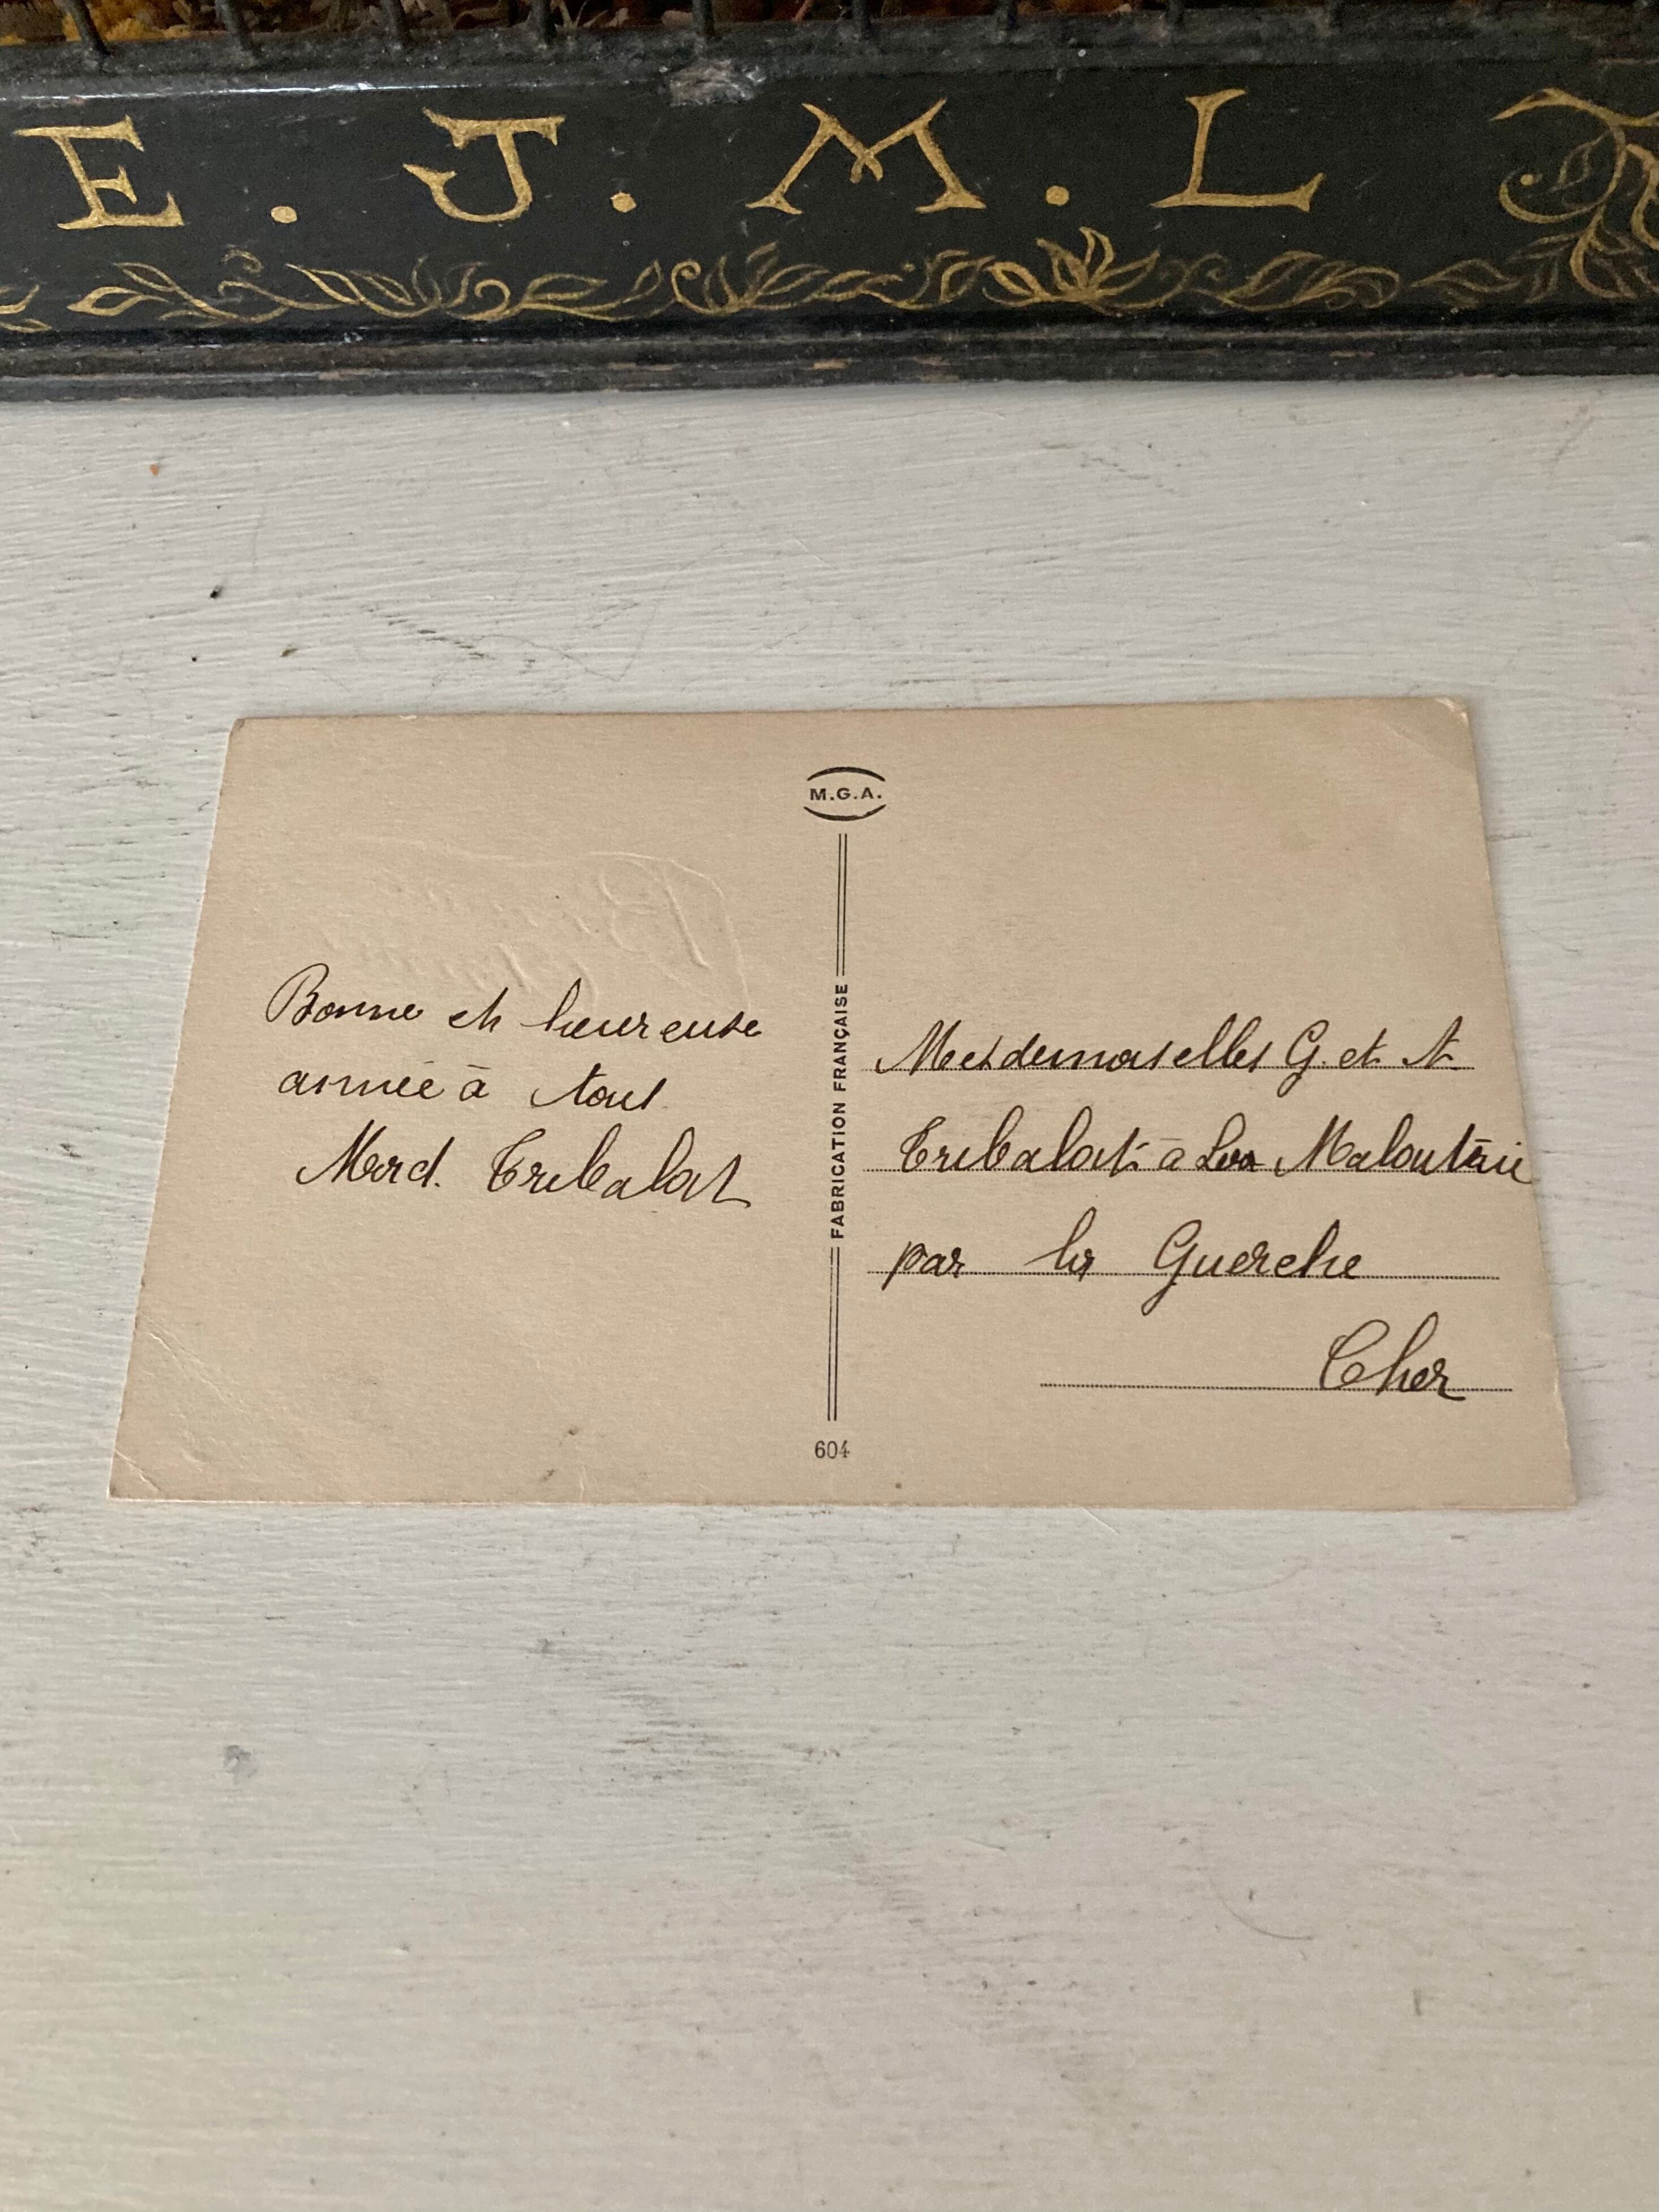 E . J . M . L
M.G.A.
Bonne et heureuse
année à tous
Mard. Tribalat
FABRICATION FRANÇAISE
Mesdemoiselles G. et A.
Tribalat à La
par la Guerche
Cher
604